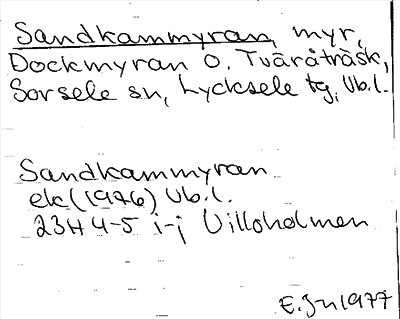 Sandkammyran, myr,
Dockmyran O. Tväråträsk,
Sorsele sn, Lycksele tg, Vb.l.
Sandkammyran
ek (1976) Vb.l.
23H 4-5 i-j Villoholmen
E. Jn 1977